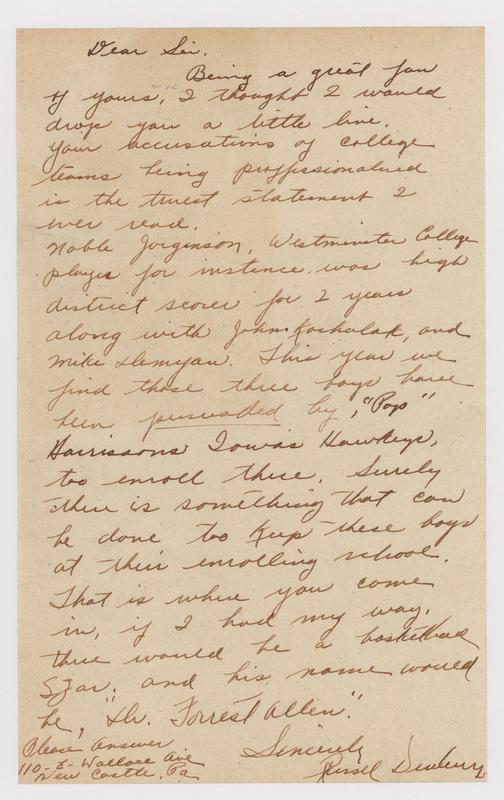 Dear Sir.
Being a great fan
of yours, I thought I would
drop you a little line.
Your accusations of college
teams being proffisionalized
is the truest statement I
ever read.
Noble Jorginson, Westminster College
player for instence was high
district scorer for 2 years
along with John Kochulak, and
Mike Demyan. This year we
find those three boys have
been pursuaded by, "Pop"
Harrisons Iowas Hawkeys,
too enroll there. Surely
there is something that can
be done too keep these boys
at their enrolling school.
That is where you come
in, if I had my way,
there would be a basketball
Szar, and his name would
be, "Dr. Forrest Allen."
Sincerely
Russel
Please Answer
110-E-Wallace Ave
New Castle, Pa